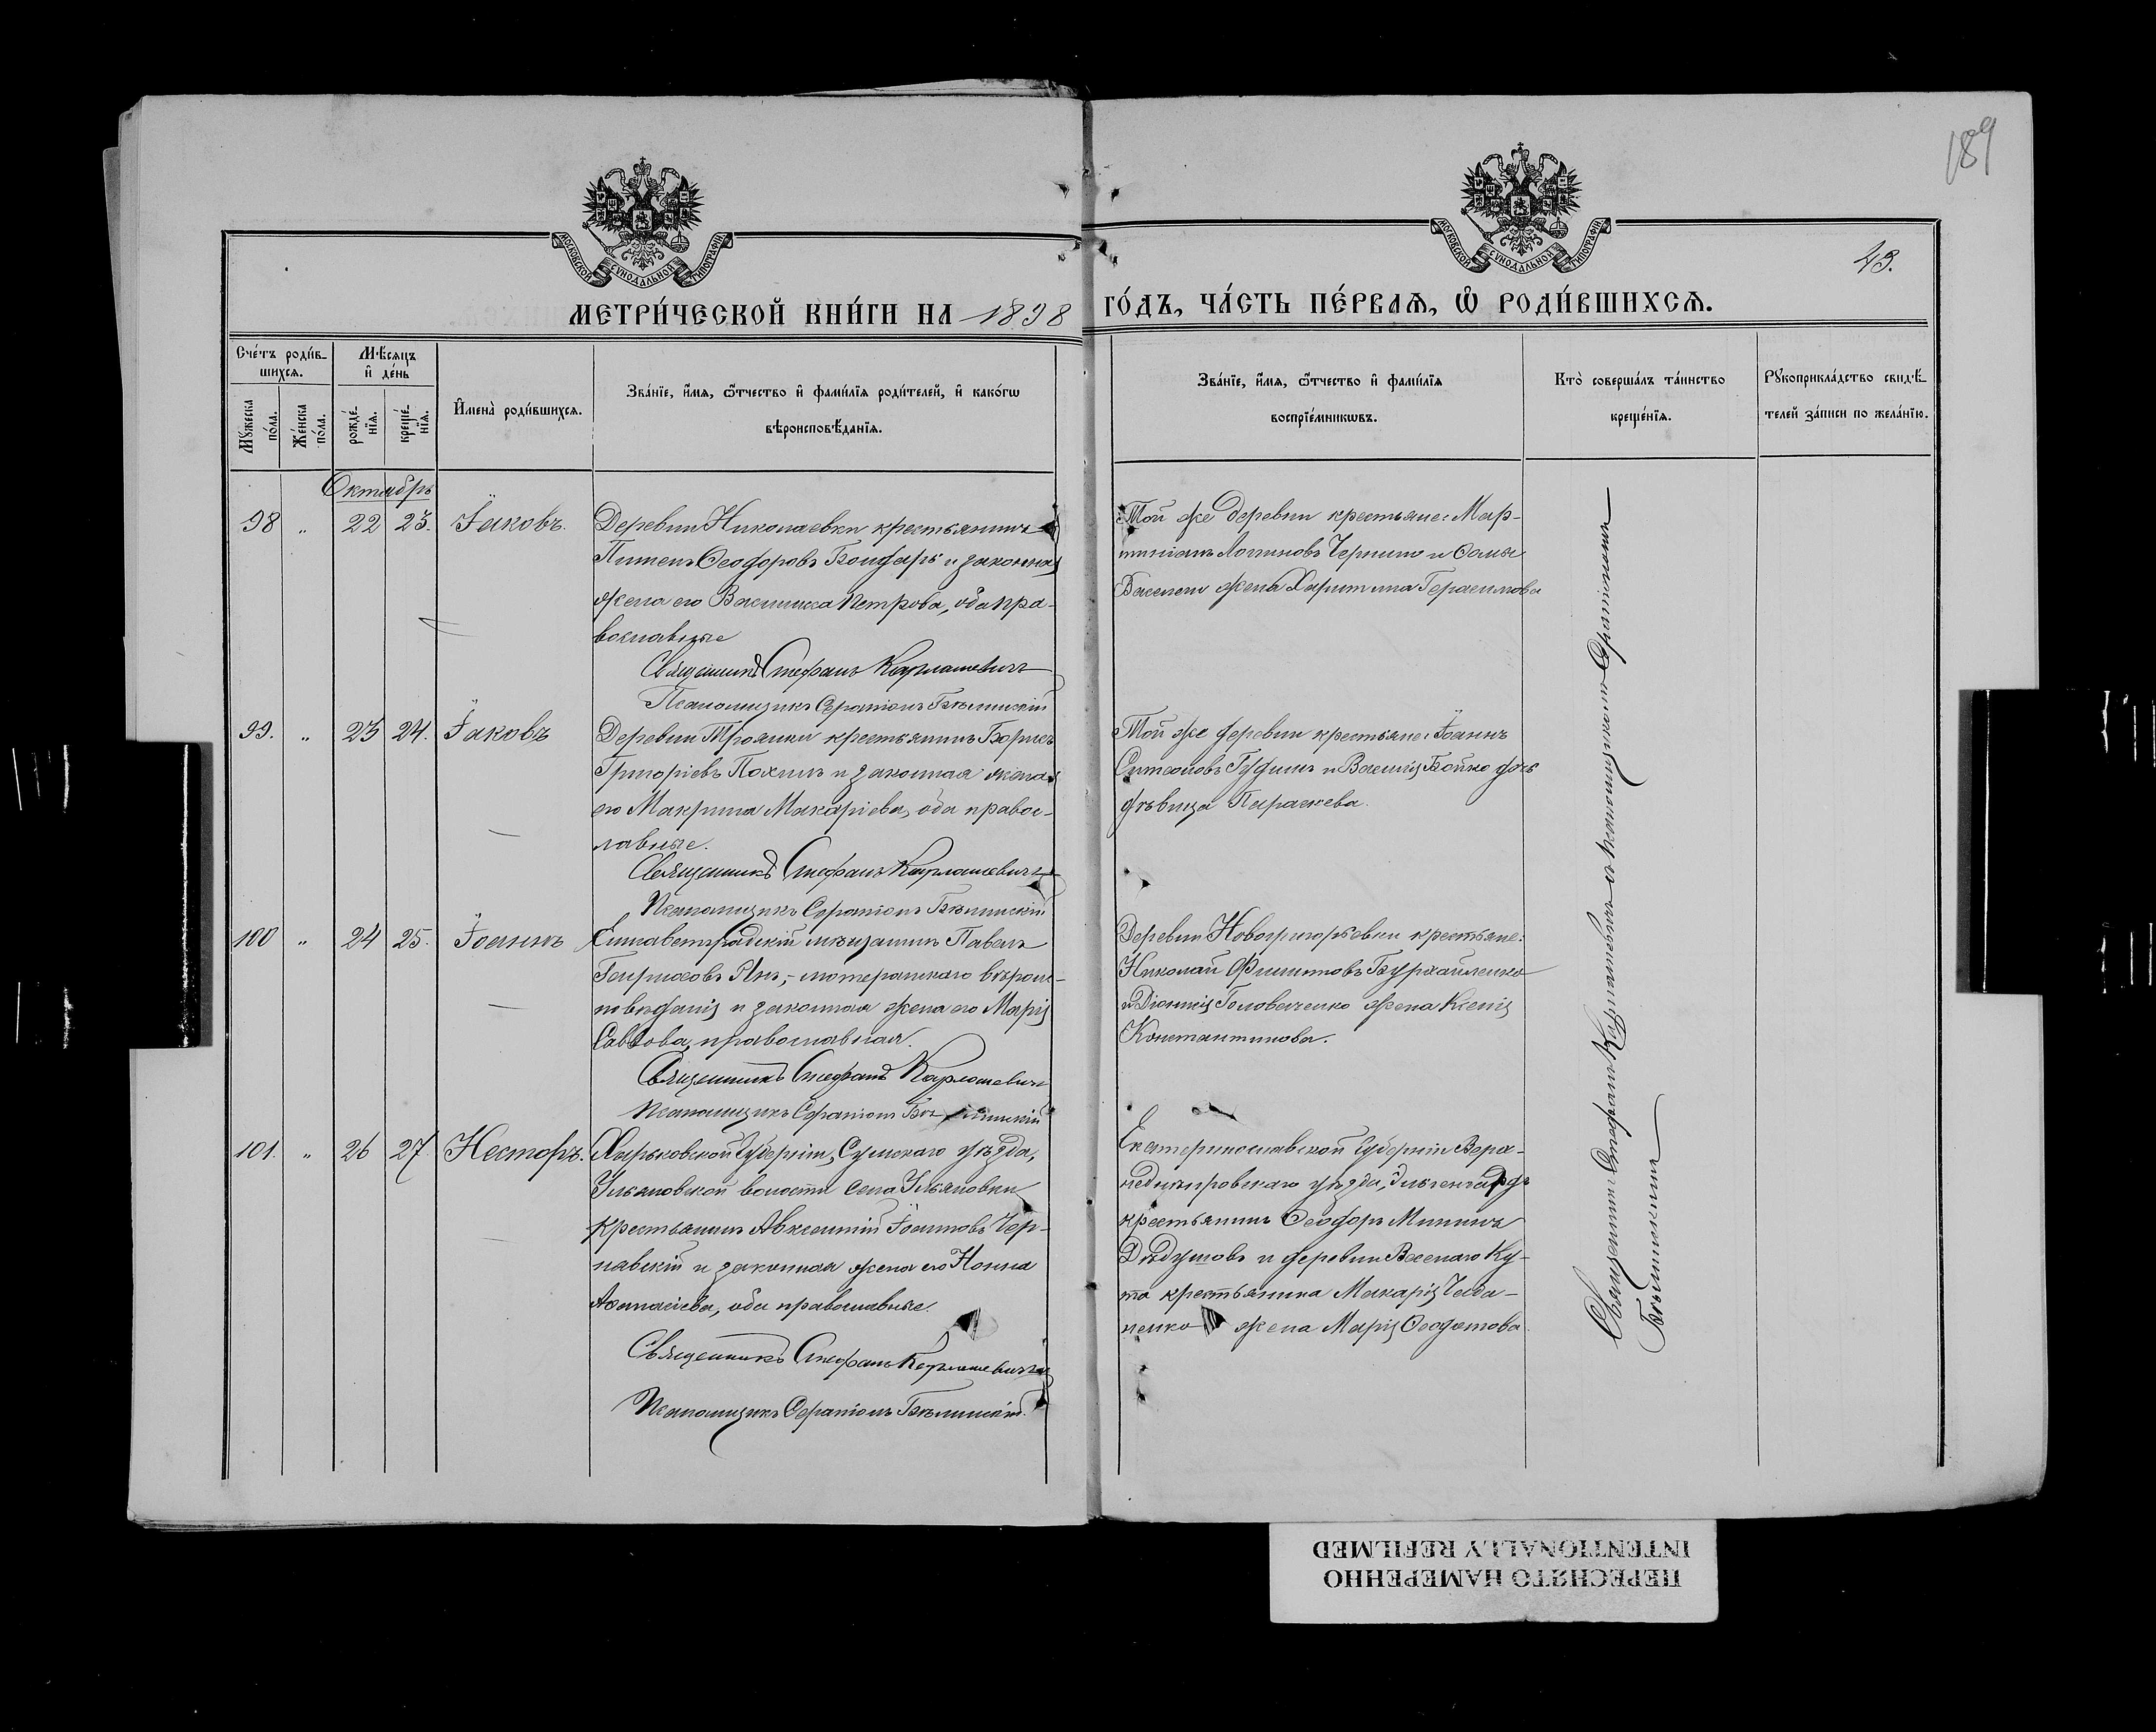 189
43.
МОСКОВСКОЙ СѴНОДАЛЬНОЙ ТИПОГРАФІИ
МОСКОВСКОЙ СѴНОДАЛЬНОЙ ТИПОГРАФІИ
МЕТРИ́ЧЕСКОЙ КНИ́ГИ НА 1898 ГО́ДЪ, ЧА́СТЬ ПЕ́РВАѦ, Ѡ РОДИ́ВШИХСѦ.
Сче́тъ роди́вшихсѧ.
Мꙋ́жеска по́ла.
Же́нска по́ла.
Мѣ́сѧцъ и҆ де́нь
рожде́нїѧ.
креще́нїѧ.
И҆мена̀ роди́вшихсѧ.
Зва́нїе, и҆́мѧ, ѻ҆́тчество и҆ фами́лїѧ роди́телей, и҆ како́гѡ
вѣроисповѣ́данїѧ.
Зва́нїе, и҆́мѧ, ѻ҆́тчество и҆ фами́лїѧ
воспрїе́мникѡвъ.
Кто̀ соверша́лъ та́инство
креще́нїѧ.
Рꙋкоприкла́дство свидѣ́-
телей за́писи по жела́нїю.
Октябрь
98 " 22 23. Іаковъ.
Деревни Николаевки крестьянинъ
Пименъ Ѳеодоровъ Бондарь и законная
жена его Василисса Петрова, оба пра-
вославные
Священникъ Стефанъ Карлашевичъ
Псаломщикъ Серапіонъ Бѣлинскій
Той же деревни крестьяне: Мар-
тиніанъ Логиновъ и Ѳомы
жена Харитина Герасимова
99. " 23 24. Іаковъ
Деревни Троянки крестьянинъ Борисъ
Григоріевъ Похилъ и законная жена
его Макрина Макаріева, оба правос-
лавные.
Священникъ Стефанъ Карлашевичъ
Псаломщикъ Серапіонъ Бѣлинскій
Той же деревни крестьяне: Іоаннъ
Симеоновъ и Василія Бойко дочь
дѣвица Параскева.
100 " 24 25. Іоаннъ
Елисаветградскій мѣщанинъ Павелъ
лютеранскаго вѣроис-
повѣданія и законная жена его Марія
Саввова, православная.
Священникъ Стефанъ Карлашевичъ
Псаломщикъ Серапіонъ Бѣлинскій
Деревни Новогригорьевки крестьяне:
Николай Филипповъ
и Діонисія Головченко жена Ксенія
Константинова.
101. " 26 27. Несторъ.
Харьковской Губерніи, Сумскаго уѣзда,
Ульяновской волости села Ульяновки
крестьянинъ Авксентій Іоанновъ Чер-
навскій и законная жена его Нонна
Аѳанасіева, оба православные.
Священникъ Стефанъ Карлашевичъ
Псаломщикъ Серапіонъ Бѣлинскій.
Екатеринославской Губерніи Верх-
недн���провскаго уѣзда,
крестьянинъ Ѳеодоръ Мининъ
Дѣдушовъ и деревни Веселаго Ку-
та крестьянина Макарія
жена Марія Ѳеодотова
Священникъ Стефанъ Карлашевичъ съ псаломщикомъ Серапіономъ
Бѣлинскимъ
ПЕРЕСНЯТО НАМЕРЕННО
INTENTIONALLY REFILMED